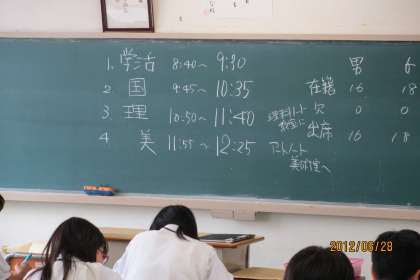 1. 学活 8:40～ 9:30
2 国 9:45～ 10:35
3 理 10:50～ 11:40
4 美 11:55～ 12:25
理科ノート
教室に
アートノート
美術室へ
男 女
在籍 16 18
欠 0 0
出席 16 18
2012/06/28